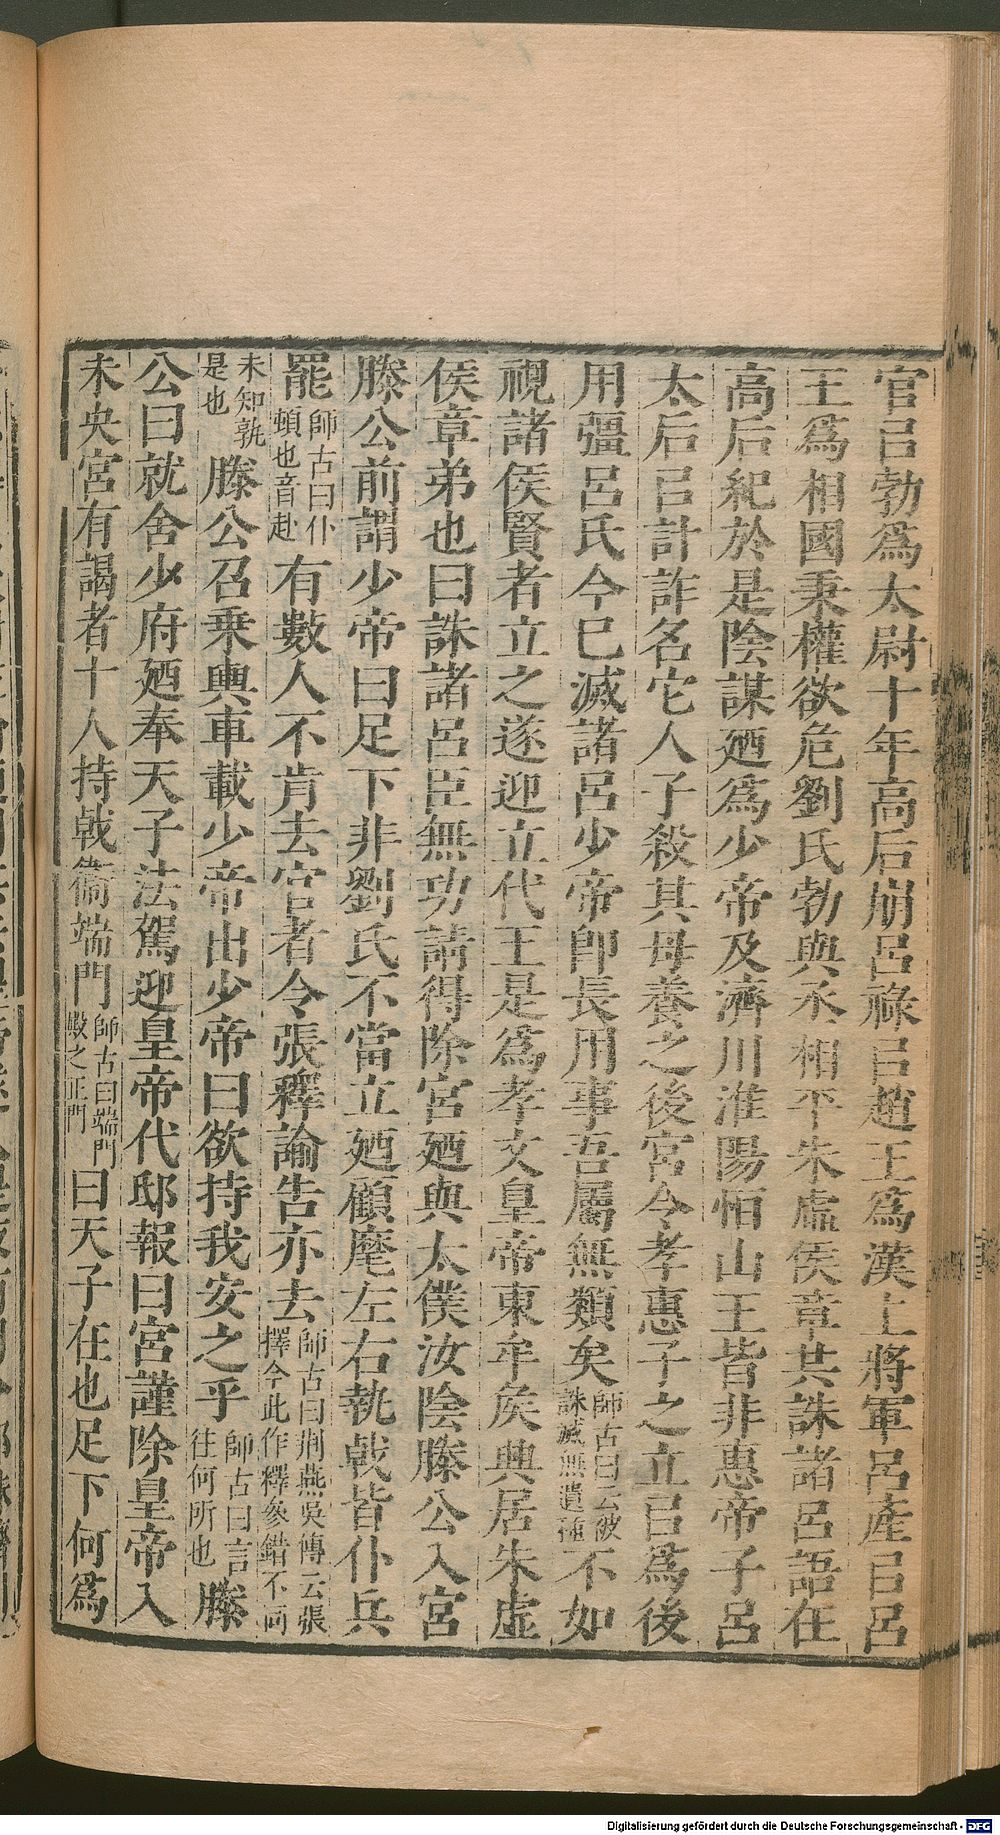 官㠯勃爲太尉十年高后崩呂祿㠯趙王爲漢上將軍呂產㠯呂
王爲相國秉權欲危劉氏勃與丞相平朱虛侯章共誅諸呂語在
高后紀於是陰謀廼爲少帝及濟川淮陽恒山王皆非惠帝子呂
太后㠯計詐名它人子殺其母養之後宮令孝惠子之立㠯爲後
用彊呂氏今已滅諸呂少帝即長用事吾屬無類矣師古曰云被誅滅無遺種不如
視諸侯賢者立之遂迎立代王是爲孝文皇帝東牟侯興居朱虛
侯章弟也曰誅諸呂臣無功請得除宮廼與太僕汝陰滕公入宮
滕公前謂少帝曰足下非劉氏不當立廼顧麾左右執戟皆仆兵
罷師古曰仆頓也音赴有數人不肯去宦者令張釋諭告亦去師古曰荆燕吳傳云張擇今此作釋參錯不同
未知孰是也滕公召乗輿車載少帝出少帝曰欲持我安之乎師古曰言往何所也滕
公曰就舍少府廼奉天子法駕迎皇帝代邸報曰宮謹除皇帝入
未央宮有謁者十人持戟衞端門師古曰端門殿之正門曰天子在也足下何爲
Digitalisierung gefördert durch die Deutsche Forschungsgemeinschaft - DFG